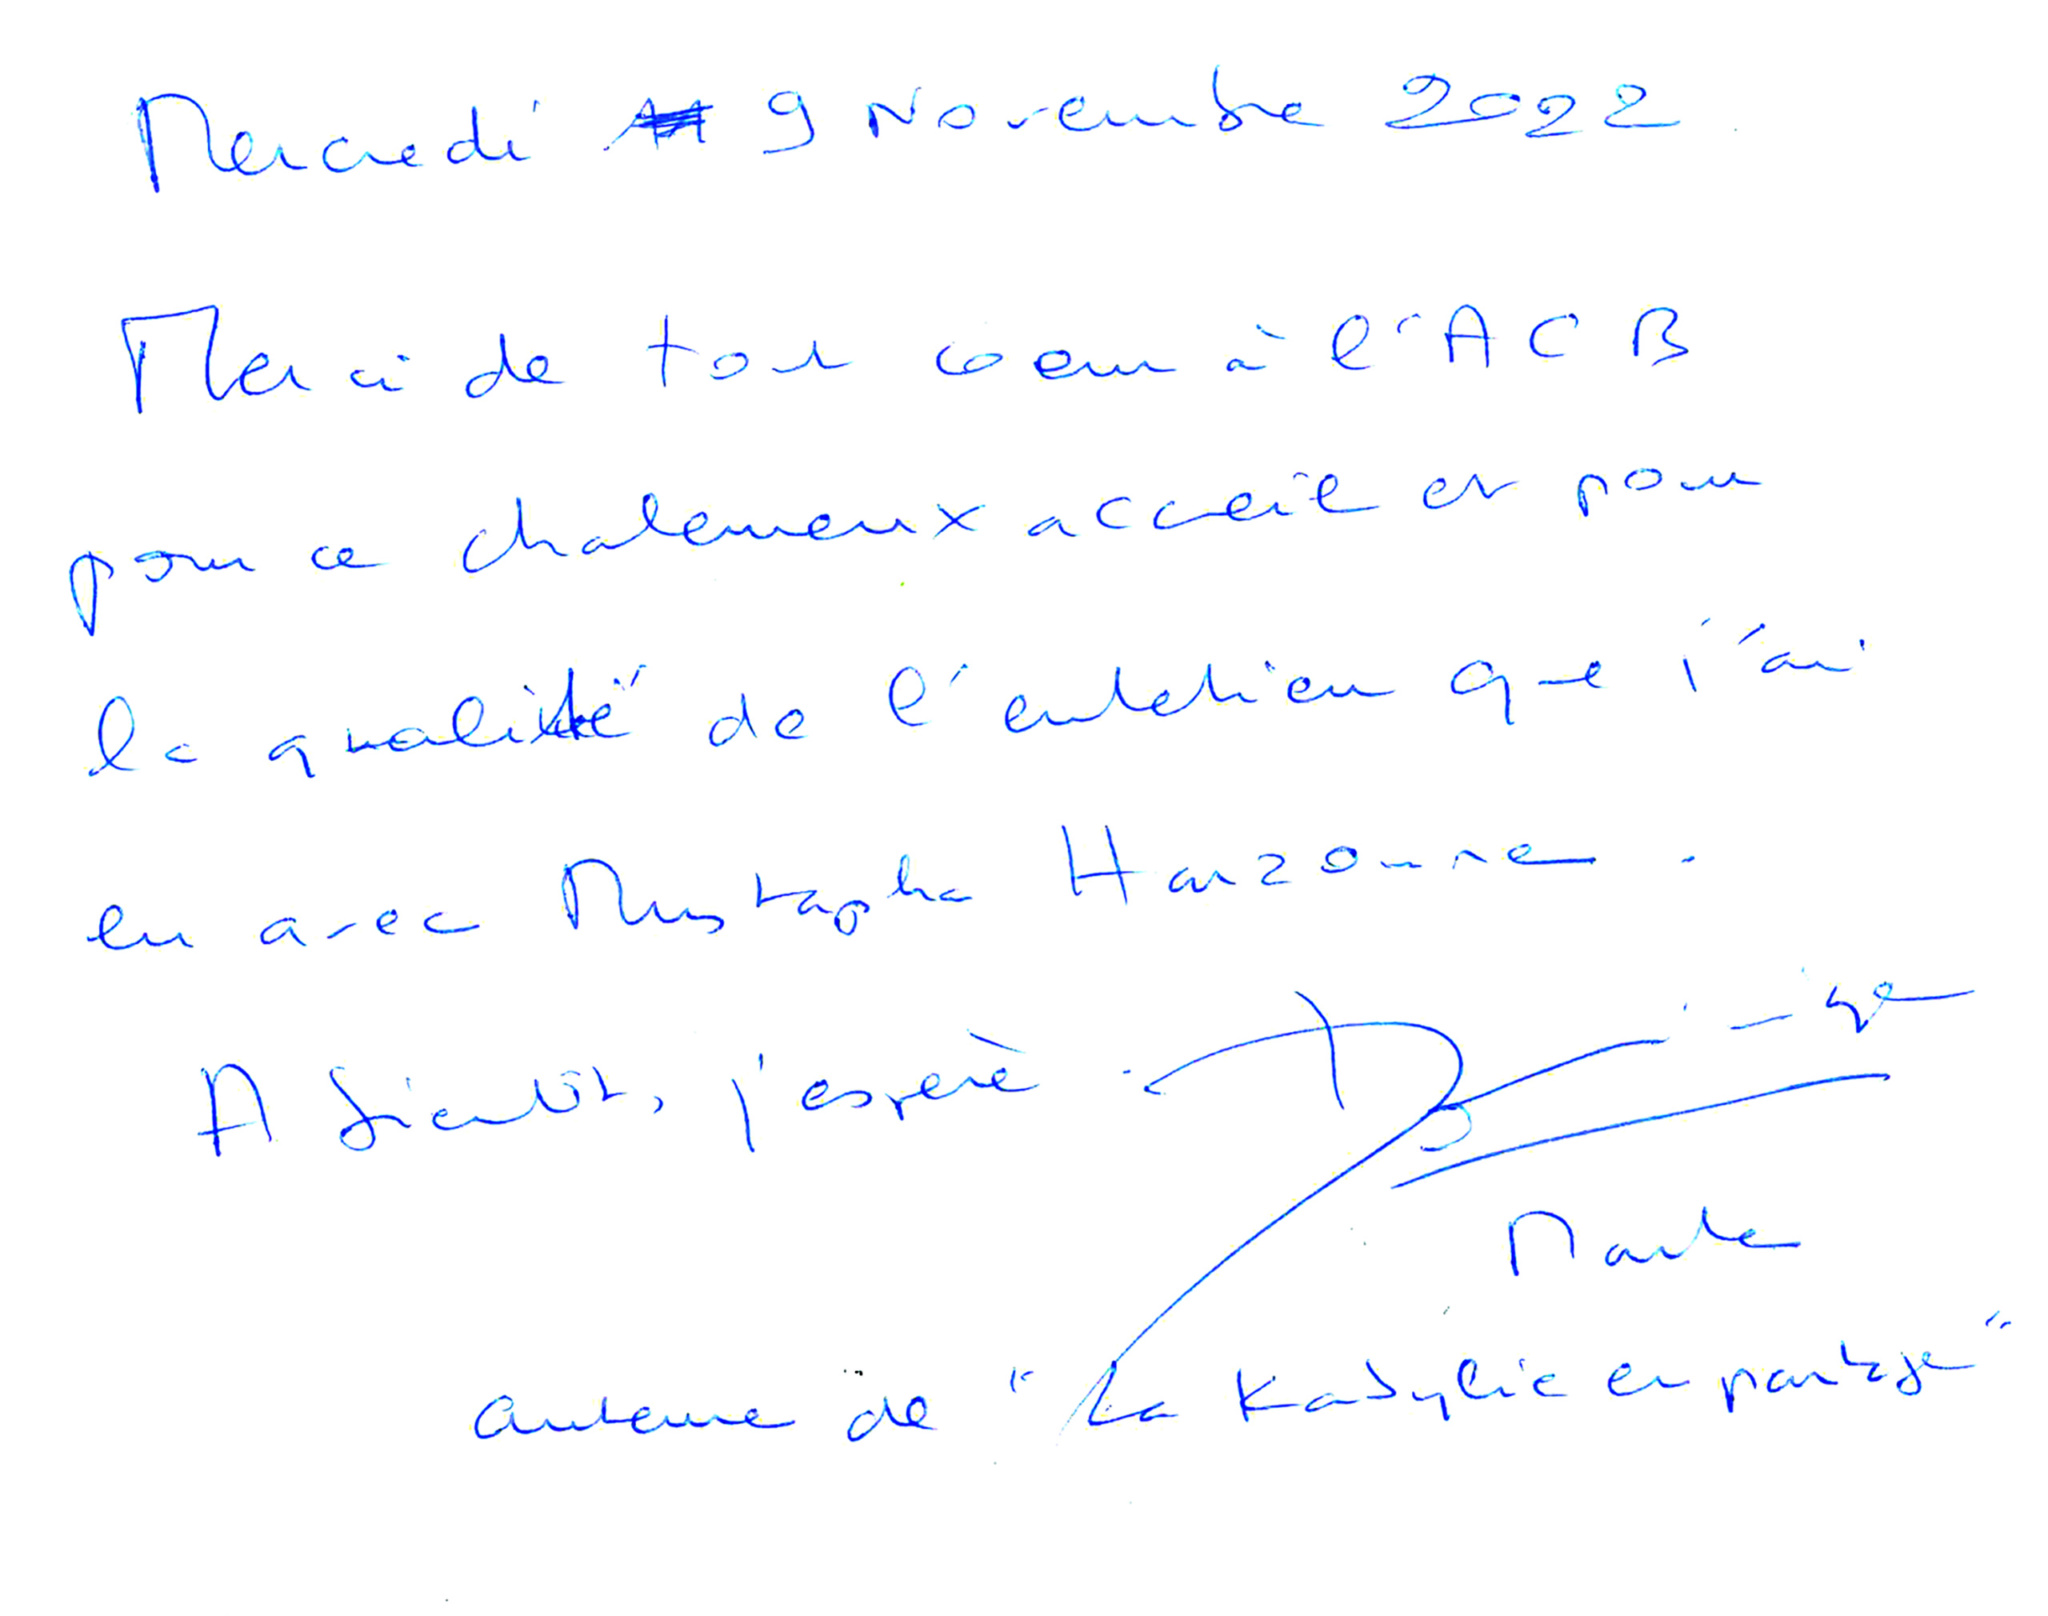 Mercredi 9 Novembre 2022.
Merci de tout coeur à l'ACB
pour ce chaleureux accueil et pour
la qualité de l'entretien que j'ai
eu avec Mustapha Harzoune.
A bientôt, j'espère. Dominique
Martre
auteure de "La Kabylie en partage"